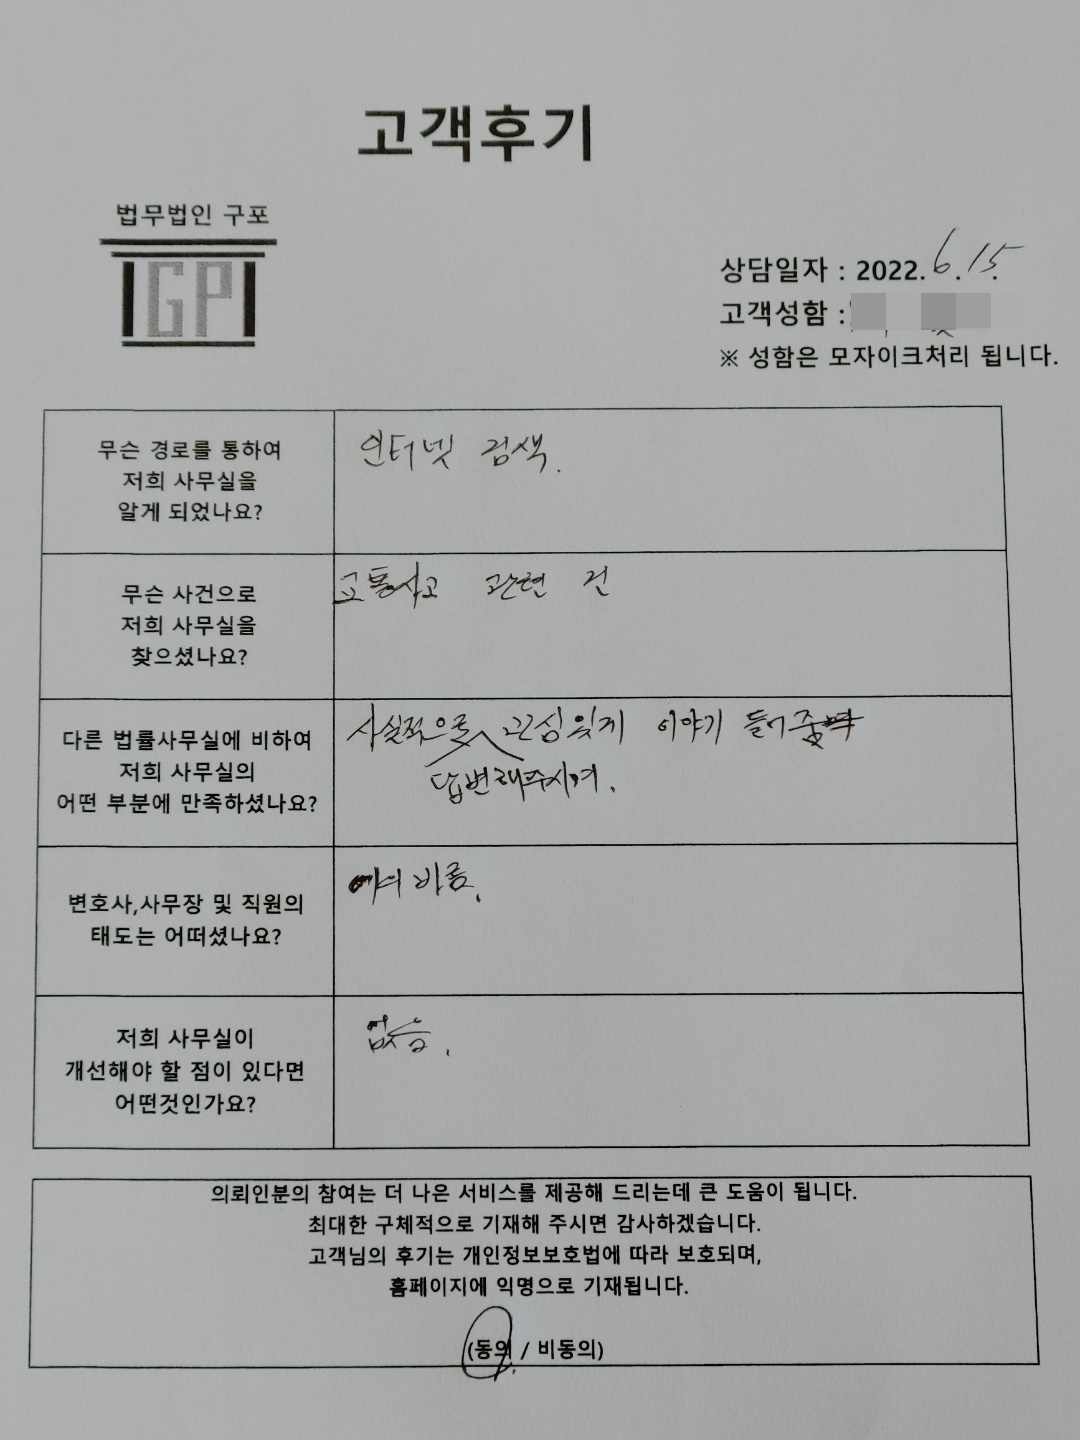 고객후기
법무법인 구포
GP
상담일자 : 2022. 6. 15.
고객성함 :
※ 성함은 모자이크처리 됩니다.
무슨 경로를 통하여
저희 사무실을
알게 되었나요?
인터넷 검색.
무슨 사건으로
저희 사무실을
찾으셨나요?
교통사고 관련 건
다른 법률사무실에 비하여
저희 사무실의
어떤 부분에 만족하셨나요?
사실적으로 관심있게 이야기 들어주
답변해주시며.
변호사,사무장 및 직원의
태도는 어떠셨나요?
예의 바름.
저희 사무실이
개선해야 할 점이 있다면
어떤것인가요?
없음.
의뢰인분의 참여는 더 나은 서비스를 제공해 드리는데 큰 도움이 됩니다.
최대한 구체적으로 기재해 주시면 감사하겠습니다.
고객님의 후기는 개인정보보호법에 따라 보호되며,
홈페이지에 익명으로 기재됩니다.
(동의 / 비동의)